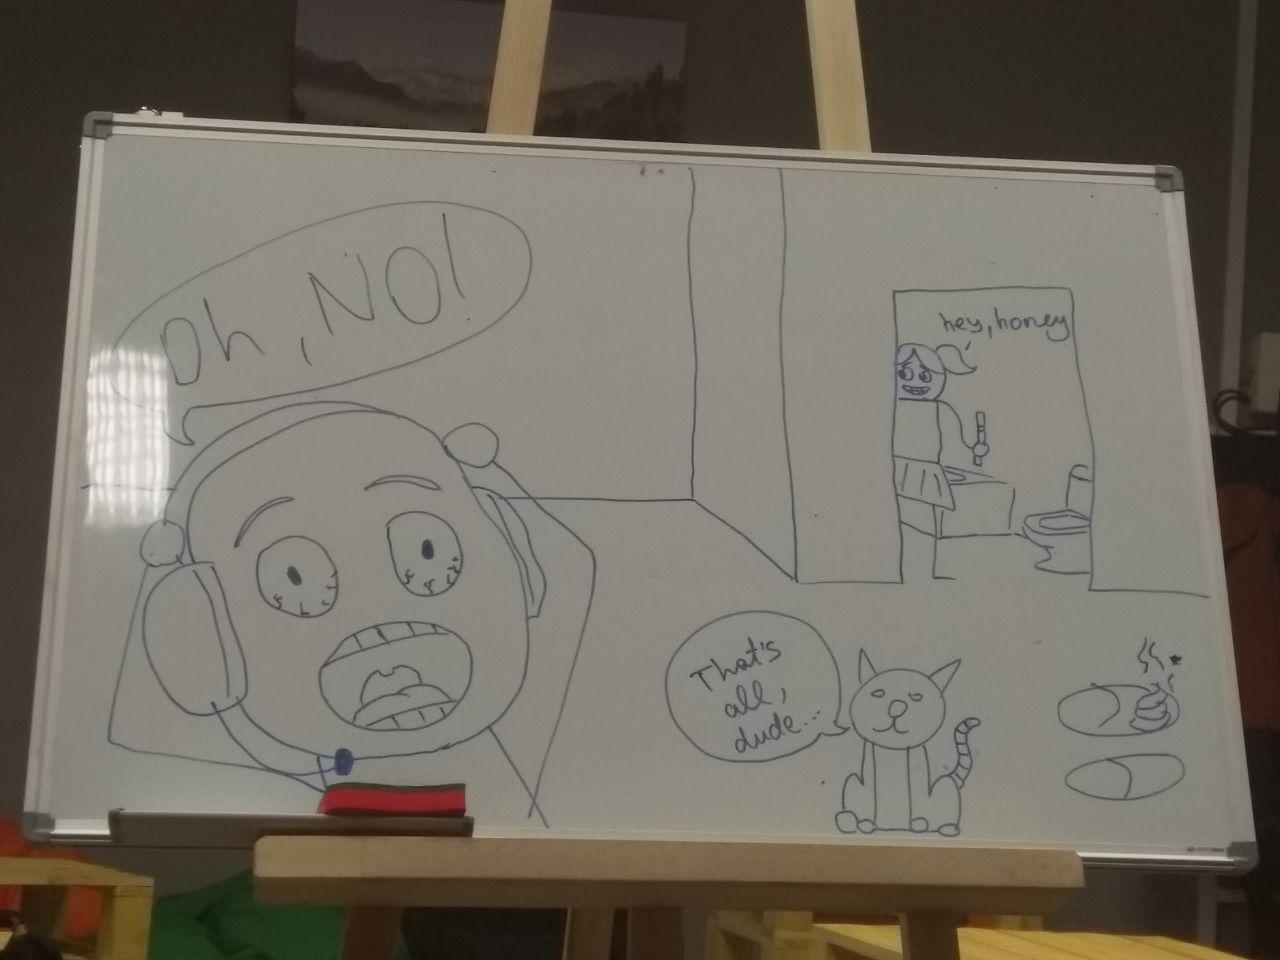 Oh, NO!
hey, honey
That's
all,
dude...